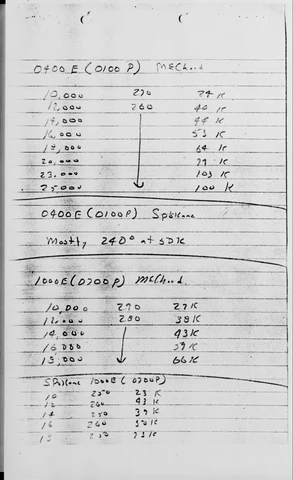 0400E (0100P) MEChord
10,000 270 24 K
12,000 260 40 K
14,000 44 K
16,000 53 K
18,000 64 K
20,000 79 K
23,000 103 K
25,000 100 K
0400E (0100P) Spokane
Mostly 240° at 50K
1000E (0700P) MEChord
10,000 290 27 K
12,000 280 38 K
14,000 43 K
16,000 59 K
18,000 66 K
Spokane 1000E (0700P)
10 250 23 K
12 260 43 K
14 250 39 K
16 260 50 K
18 250 73 K